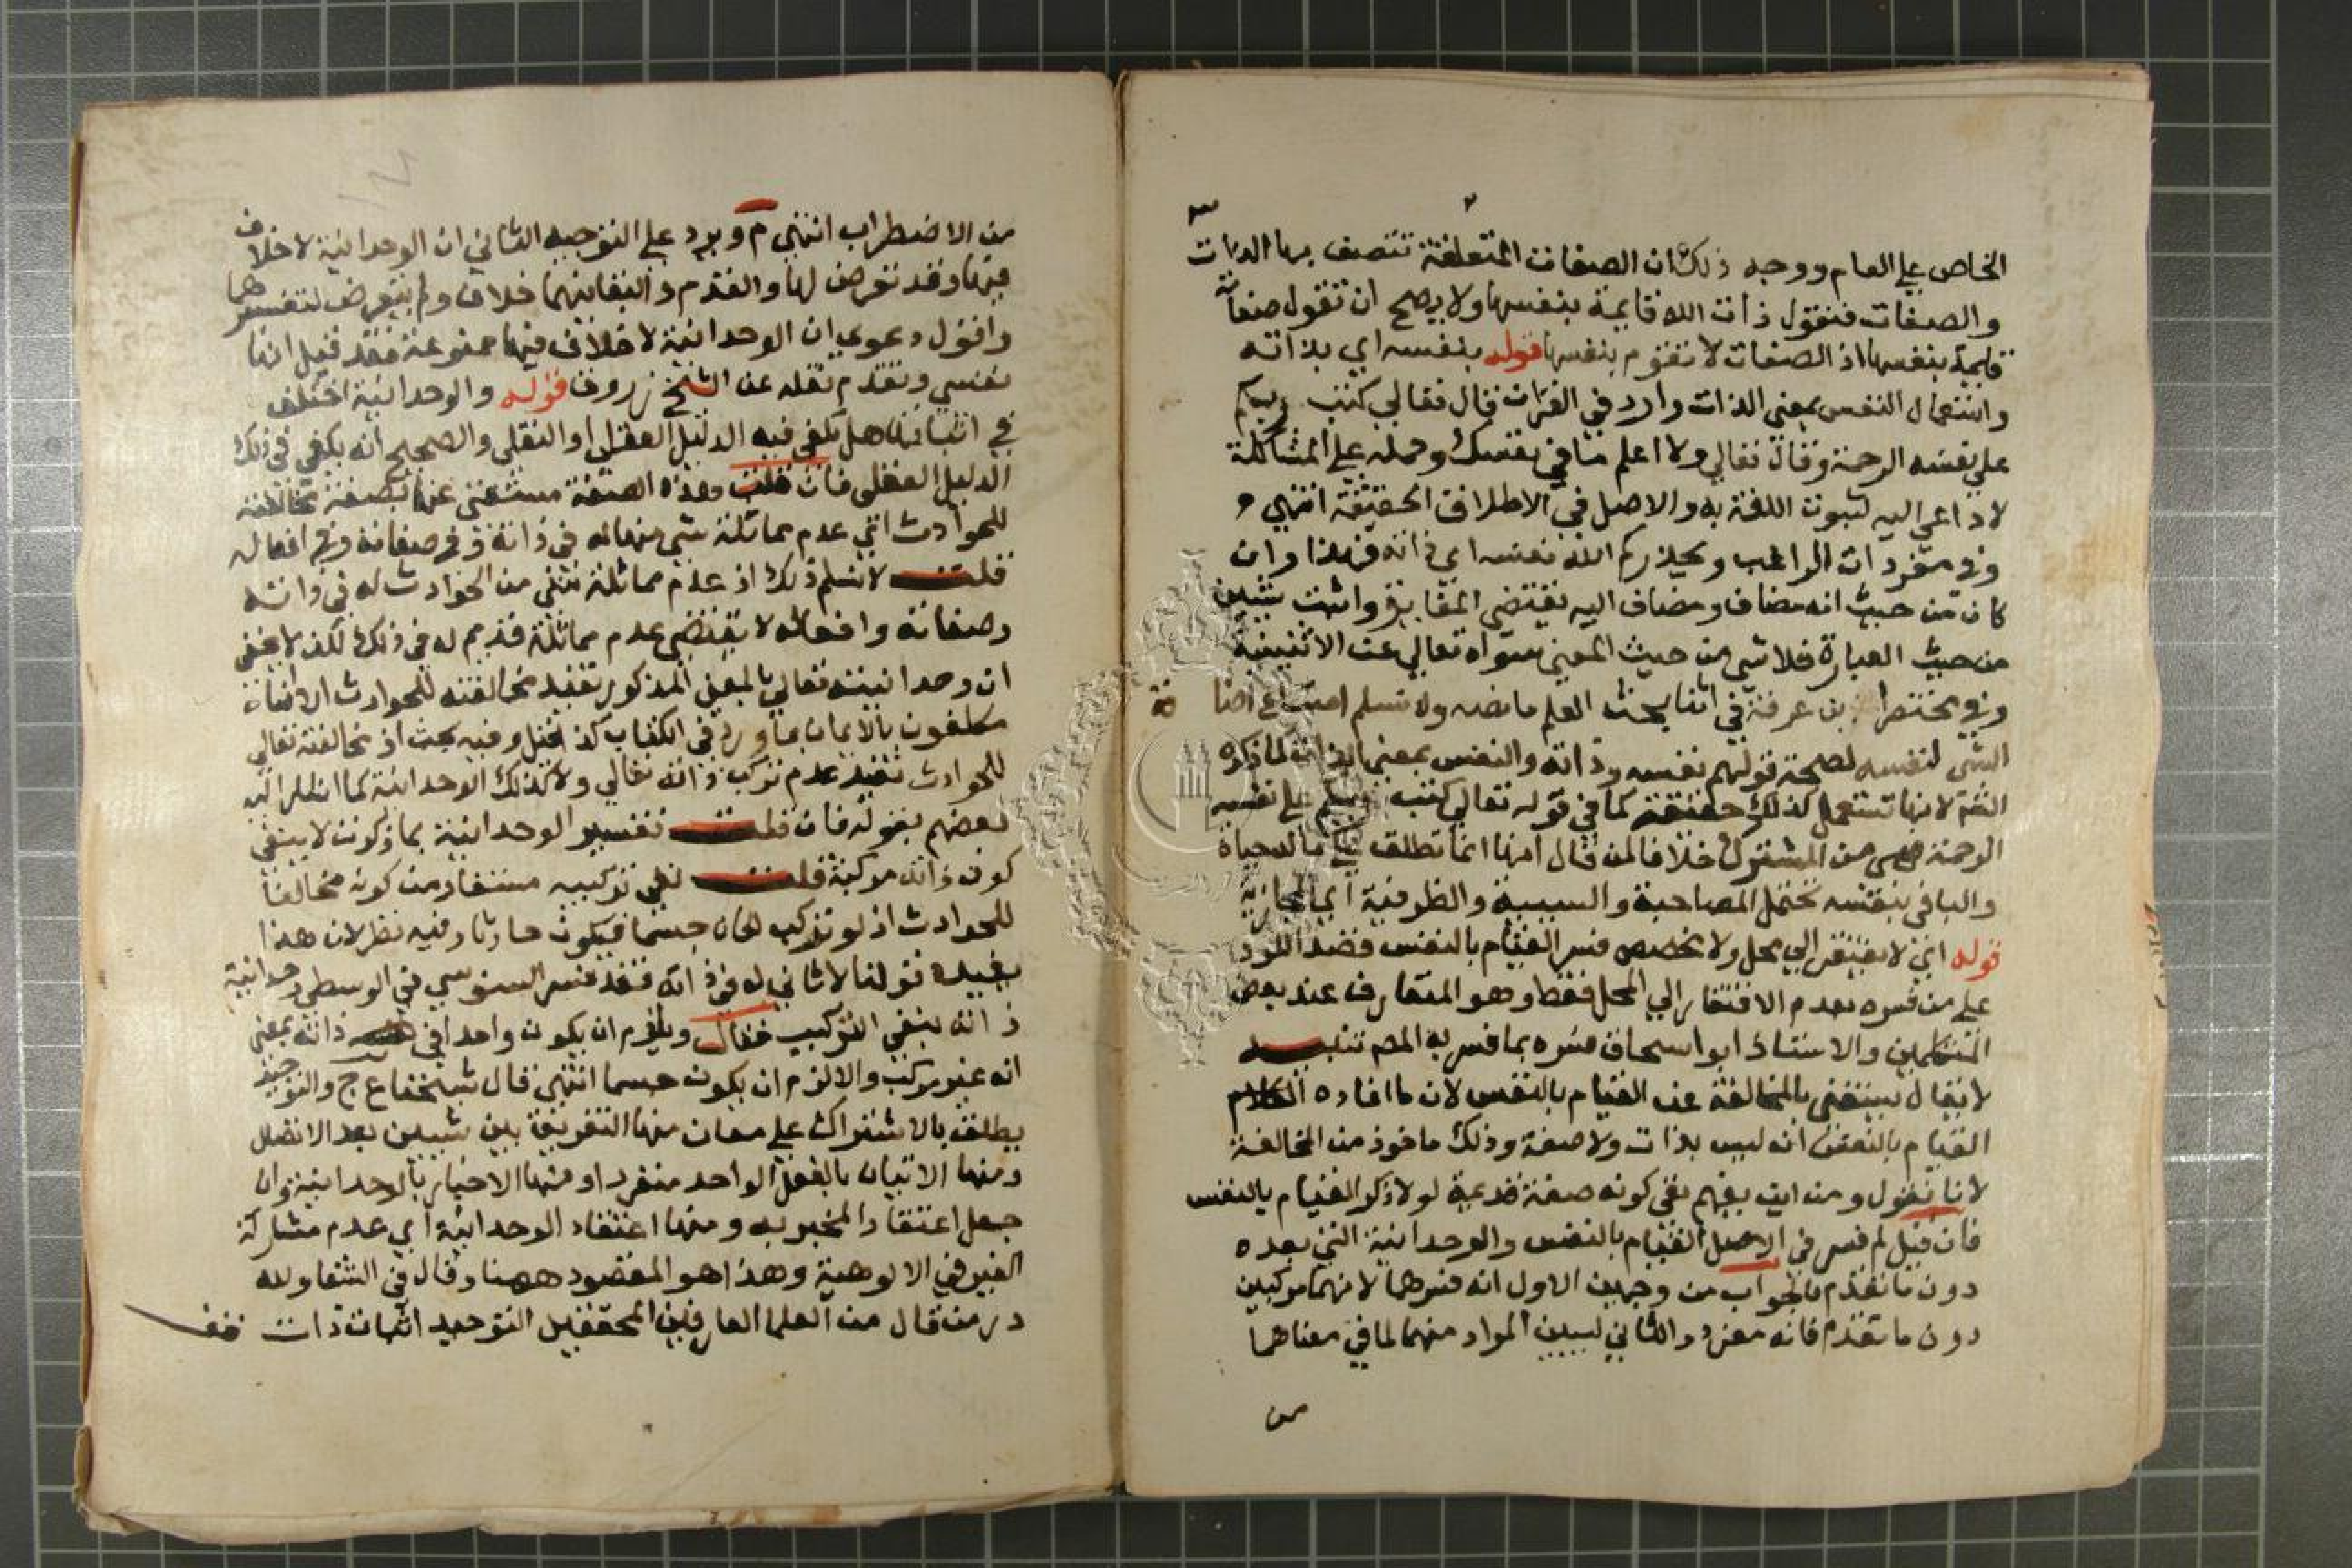 الخاص علي العام ووجه ذلك ان الصفات المتعلقة تتصف بها الذات
والصفات فنقول ذات الله قايمة بنفسها ولا يصح ان تقول صفاته
قايمة بنفسها اذ الصفات لا تقوم بنفسها قوله بنفسه اي بذاته
واستعمال النفس بمعني الذات وارد في القران قال تعالي كتب ربكم
علي نفسه الرحمة وقال تعالي ولا اعلم ما في نفسك وحمله علي المشاكلة
لا داعي اليه لثبوت اللغة به والاصل في الاطلاق الحقيقة انتهي
وفي مفردات الراغب ويحذركم الله نفسه اي ذاته فهذا وان
كان من حيث انه مضاف ومضاف اليه يقتضي المغايرة واثبت شيئين
من حيث العبارة فلا شي من حيث المعني سواه تعالي عن الاثنينية
وفي مختصر ابن عرفة في اثنا بحث العلم ما نصه ولا نسلم امتناع اضافة
الشي لنفسه لصحة قولهم نفسه وذاته والنفس بمعني الذات كما ذكره
لانها تستعمل كذلك حقيقة كما في قوله تعالي كتب ربكم علي نفسه
الرحمة من المشترك خلافا لمن قال انها انما تطلق علي ما له حياة
والبا في بنفسه تحتمل المصاحبة والسببية والظرفية اي المجازية
قوله اي لا يفتقر الي محل ولا مخصص فسر القيام بالنفس قصد الرد
علي من فسره بعدم الافتقار الي المحل فقط وهو المتعارف عند بعض
المتكلمين والاستاذ ابو اسحاق فسره بما فسر به المص تنبيه
لا يقال يستغني بالمخالفة عن القيام بالنفس لان ما افاده الكلام
القيام بالنفس انه ليس بذات ولا صفة وذلك ماخوذ من المخالفة
لانا نقول ومن اين يفهم نفي كونه صفة قديمة لولا ذكر القيام بالنفس
فان قيل لم فسر في الاصل القيام بالنفس والوحدانية التي بعده
دون ما تقدم فالجواب من وجهين الاول انه فسرهما لانهما مركبين
دون ما تقدم فانه مفرد والثاني ليبين المراد منهما لما في معناهما
من
من الاضطراب انتهي م ويرد علي التوجيه الثاني ان الوحدانية لا خلاف
فيها وقد تعرض لها والقدم والبقا فيهما خلاف ولم يتعرض لتفسيرهما
واقول دعوي ان الوحدانية لا خلاف فيها ممنوعة فقد قيل انها
نفسي وتقدم نقله عن الشيخ زروق قوله والوحدانية اختلف
في اثباتها هل يكفي فيه الدليل العقلي او النقلي والصحيح انه يكفي في ذلك
الدليل العقلي فان قلت وهذه الصفة مستغني عنها بصفة مخالفته
للحوادث اي عدم مماثلة شي منها له في ذاته وفي صفاته وفي افعاله
قلت لا نسلم ذلك اذ عدم مماثلة شي من الحوادث له في ذاته
وصفاته وافعاله لا يقتضي عدم مماثلة قديم له في ذلك لكن لا يخفي
ان وحدانيته تعالي بالمعني المذكور تفيد مخالفته للحوادث الا اننا
مكلفون بالايمان بما ورد في الكتاب كذا قيل وفيه بحث اذ مخالفته تعالي
للحوادث تفيد عدم تركب ذاته تعالي ولا كذلك الوحدانية كما اشار اليه
بعضهم بقوله فان قلت تفسير الوحدانية بما ذكرت لا ينفي
كون ذاته مركبة قلت نفي تركيبه مستفاد من كونه مخالفا
للحوادث اذ لو تركب لكان جسما فيكون حادثا وفيه نظر لان هذا
يفيده قولنا لا ثاني له في ذاته فقد فسر السنوسي في الوسطي وحدانية
ذاته بنفي التركيب فقال ويلزم ان يكون واحدا في ذاته بمعني
انه غير مركب والا لزم ان يكون جسما انتهي قال شيخنا ع ج والتوحيد
يطلق بالاشتراك علي معان منها التفريق بين شيئين بعد الاتصال
ومنها الاتيان بالفعل الواحد منفردا ومنها الاخبار بالوحدانية وان
جهل اعتقاد المخبر به ومنها اعتقاد الوحدانية اي عدم مشاركة
الغير في الالوهية وهذا هو المقصود ههنا وقال في الشفا ولله
در من قال من العلما العارفين المحققين التوحيد اثبات ذات